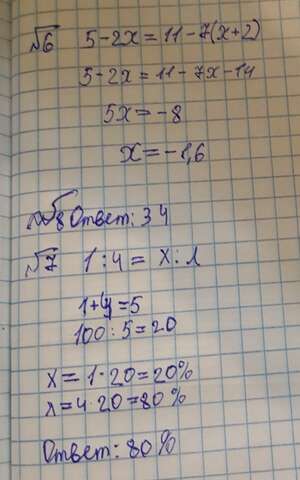 №6 5-2x=11-7(x+2)
5-2x=11-7x-14
5x=-8
x=-1,6
№8 Ответ: 34
№7 1:4=x:л
1+4=5
100:5=20
x=1·20=20%
л=4·20=80%
Ответ: 80%